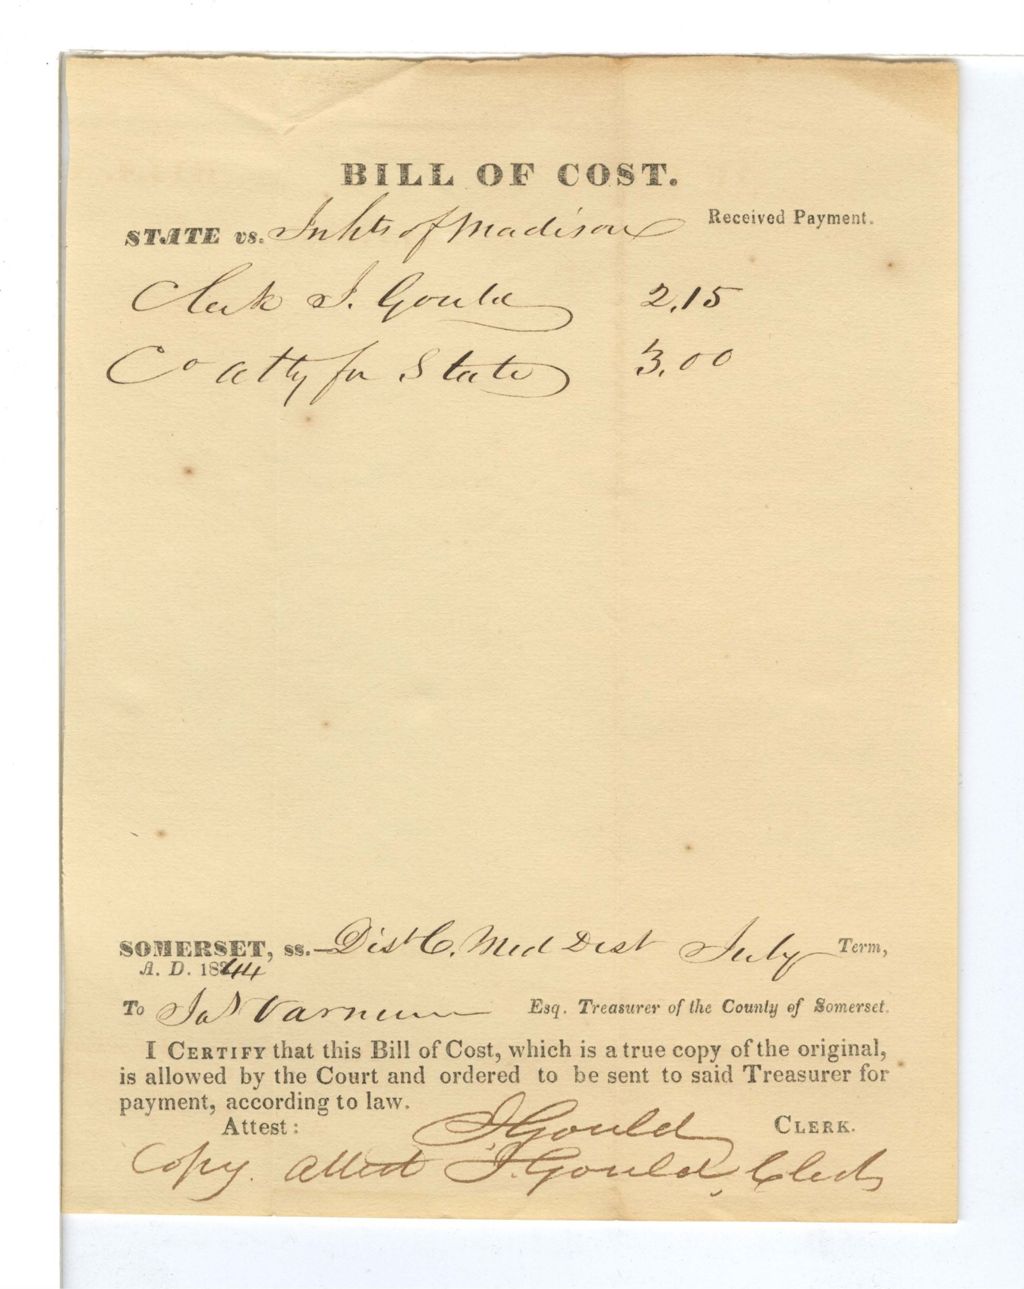 BILL OF COST.
STATE vs. Inhts of Madison Received Payment.
Clerk J. Gould 2.15
Co Atty for State 3.00
SOMERSET, ss. Dist C. Mid Dist July Term,
A. D. 1844
To Jas Varnum Esq. Treasurer of the County of Somerset.
I CERTIFY that this Bill of Cost, which is a true copy of the original,
is allowed by the Court and ordered to be sent to said Treasurer for
payment, according to law.
Attest: J Gould CLERK.
Copy. Attest J. Gould, Clerk